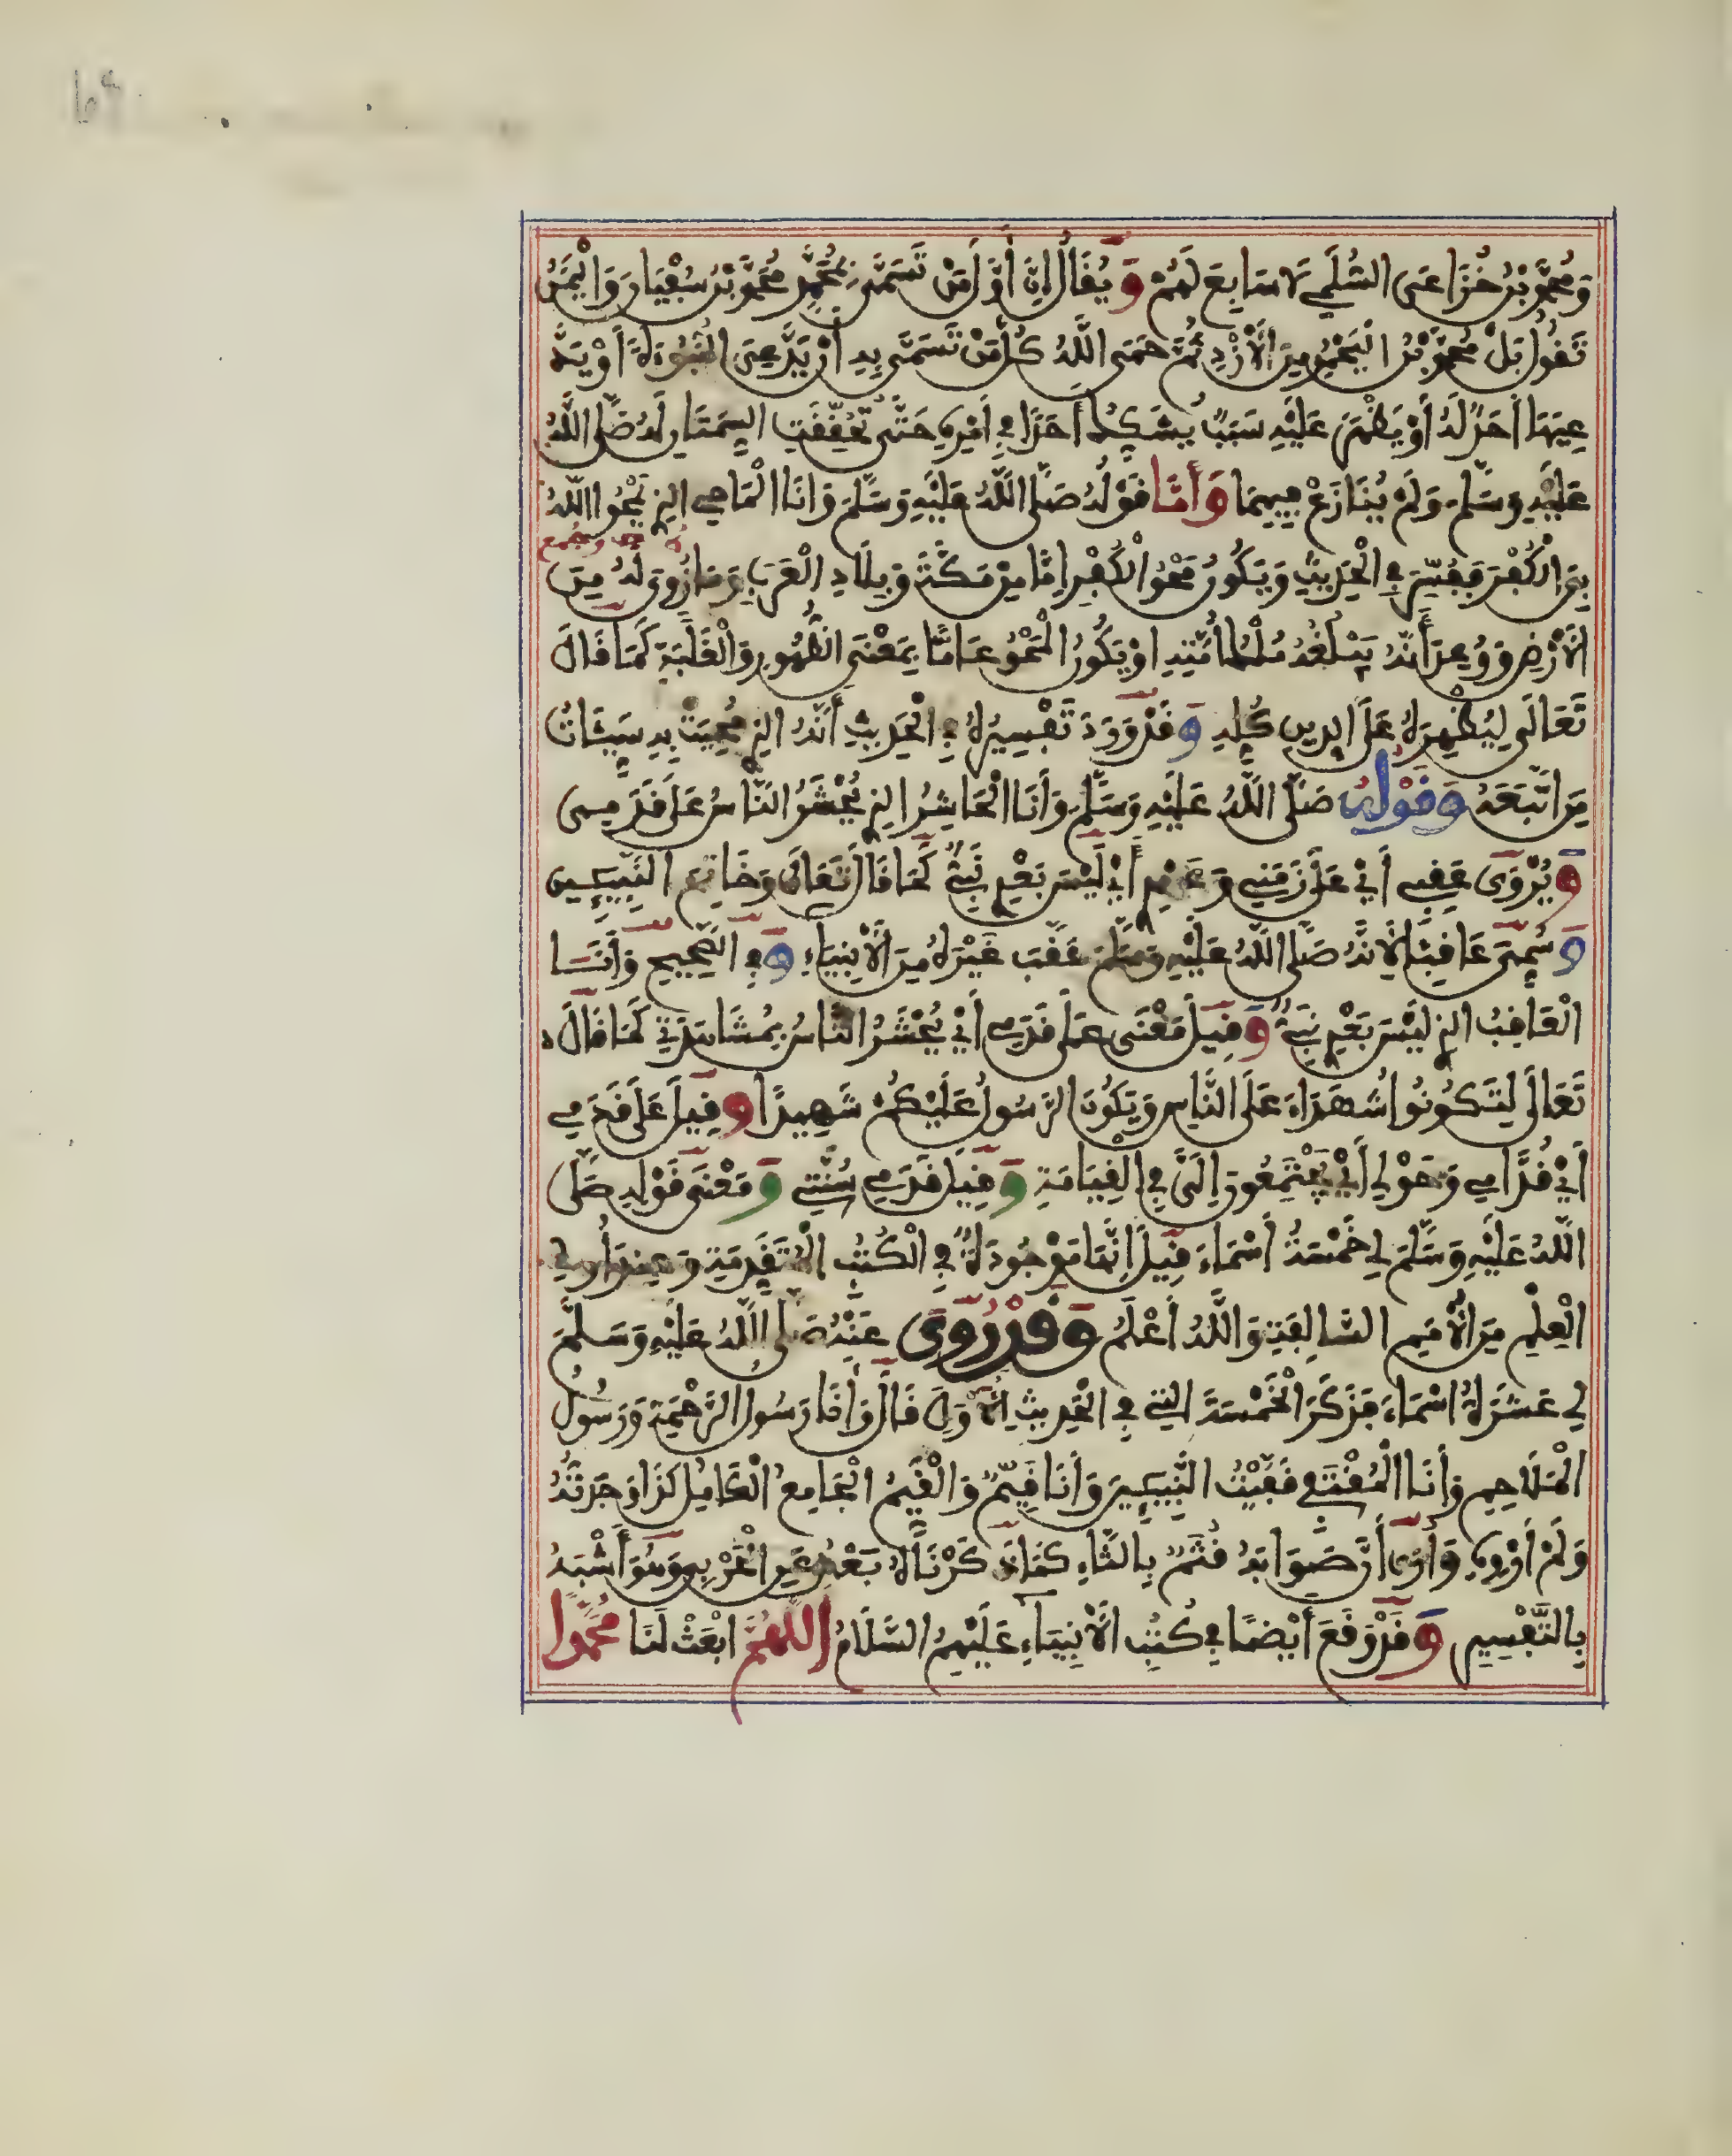 وَمُحَمَّدُ بْنُ خُزَاعِيٍّ السُّلَمِي لَا سَابِعَ لَهُمْ وَيُقَالُ إِنَّ أَوَّلَ مَنْ تَسَمَّى بِمُحَمَّدٍ مُحَمَّدُ بْنُ سُفْيَانَ وَالْيَمَنُ
تَقُولُ بَلْ مُحَمَّدُ بْنُ الْيَحْمِدِ مِنَ الْأَزْدِ ثُمَّ حَمَى اللَّهُ كُلَّ مَنْ تَسَمَّى بِهِ أَنْ يَدَّعِيَ النُّبُوءَةَ أَوْ يَدَّ
عِيَهَا أَحَدٌ لَهُ أَوْ يَظْهَرَ عَلَيْهِ سَبَبٌ يُشَكِّكُ أَحَدًا فِي أَمْرِهِ حَتَّى تَحَقَّقَتِ السِّمَتَانِ لَهُ صَلَّى اللَّهُ
عَلَيْهِ وَسَلَّمَ وَلَمْ يُنَازَعْ فِيهِمَا وَأَمَّا قَوْلُهُ صَلَّى اللَّهُ عَلَيْهِ وَسَلَّمَ وَأَنَا الْمَاحِي الذِي يَمْحُو اللَّهُ
بِيَ الْكُفْرَ فَفُسِّرَ فِي الْحَدِيثِ وَيَكُونُ مَحْوُ الْكُفْرِ إِمَّا مِنْ مَكَّةَ وَبِلَادِ الْعَرَبِ وَمَا زُوِيَ لَهُ مِنَ
الْأَرْضِ وَوُعِدَ أَنَّهُ يَبْلُغُهُ مُلْكُ أُمَّتِهِ أَوْ يَكُونُ الْمَحْوُ عَامًّا بِمَعْنَى الظُّهُورِ وَالْغَلَبَةِ كَمَا قَالَ
تَعَالَى لِيُظْهِرَهُ عَلَى الدِّينِ كُلِّهِ وَقَدْ وَرَدَ تَفْسِيرُهُ فِي الْحَدِيثِ أَنَّهُ الذِي مُحِيَتْ بِهِ سَيِّئَاتُ
مَنِ اتَّبَعَهُ وَقَوْلُهُ صَلَّى اللَّهُ عَلَيْهِ وَسَلَّمَ وَأَنَا الْحَاشِرُ الذِي يُحْشَرُ النَّاسُ عَلَى قَدَمِي
وَيُرْوَى عَقِبِي أَيْ عَلَى زَمَنِي وَعَهْدِي أَيْ لَيْسَ بَعْدِي نَبِيٌّ كَمَا قَالَ تَعَالَى وَخَاتِمَ النَّبِيِّينَ
وَسُمِّيَ عَاقِبًا لِأَنَّهُ صَلَّى اللَّهُ عَلَيْهِ وَسَلَّمَ عَقَبَ غَيْرَهُ مِنَ الْأَنْبِيَاءِ وَفِي الصَّحِيحِ وَأَنَا
الْعَاقِبُ الذِي لَيْسَ بَعْدِي نَبِيٌّ وَقِيلَ مَعْنَى عَلَى قَدَمِي أَيْ يُحْشَرُ النَّاسُ بِمُشَاهَدَتِي كَمَا قَالَ
تَعَالَى لِتَكُونُوا شُهَدَاءَ عَلَى النَّاسِ وَيَكُونَ الرَّسُولُ عَلَيْكُمْ شَهِيدًا وَقِيلَ عَلَى قَدَمِي
أَيْ قُدَّامِي وَحَوْلِي أَيْ يَجْتَمِعُونَ إِلَيَّ فِي الْقِيَامَةِ وَقِيلَ قَدَمِي سُنَّتِي وَمَعْنَى قَوْلِهِ صَلَّى
اللَّهُ عَلَيْهِ وَسَلَّمَ لِي خَمْسَةُ أَسْمَاءَ قِيلَ إِنَّهَا مَوْجُودَةٌ فِي الْكُتُبِ الْمُتَقَدِّمَةِ وَعِنْدَ أُولِي
الْعِلْمِ مِنَ الْأُمَمِ السَّالِفَةِ وَاللَّهُ أَعْلَمُ وَقَدْ رُوِيَ عَنْهُ صَلَّى اللَّهُ عَلَيْهِ وَسَلَّمَ
لِي عَشَرَةُ أَسْمَاءَ فَذَكَرَ الْخَمْسَةَ التِي فِي الْحَدِيثِ الْأَوَّلِ قَالَ وَأَنَا رَسُولُ الرَّحْمَةِ وَرَسُولُ
الْمَلَاحِمِ وَأَنَا الْمُقْتَفِي قَفَّيْتُ النَّبِيِّينَ وَأَنَا قَيِّمٌ وَالْقَيِّمُ الْجَامِعُ الْكَامِلُ كَذَا وَجَدْتُهُ
وَلَمْ أَرْوِهِ وَأَرَى أَنَّ صَوَابَهُ قُثَمٌ بِالثَّاءِ كَمَا ذَكَرْنَاهُ بَعْدُ عَنِ الْحَرْبِيِّ وَهُوَ أَشْبَهُ
بِالتَّفْسِيرِ وَقَدْ وَقَعَ أَيْضًا فِي كُتُبِ الْأَنْبِيَاءِ عَلَيْهِمُ السَّلَامُ اللَّهُمَّ ابْعَثْ لَنَا مُحَمَّدًا